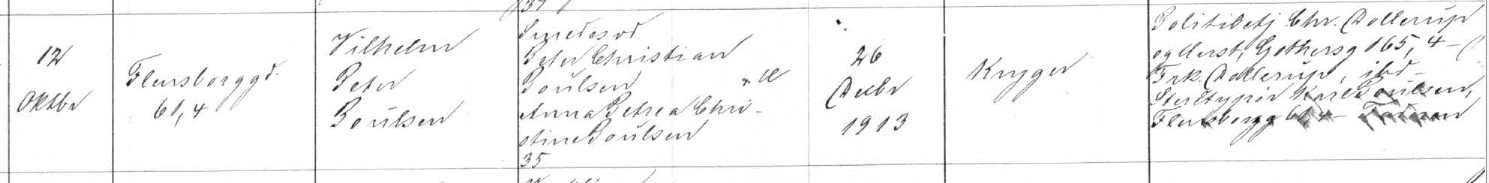 12
Oktbr
Flensborggd.
61,4
Vilhelm
Peter
Poulsen
Smedesvd
Peter Christian
Poulsen
Anna Petrea Chri-
stine Poulsen
35
26
Decbr
1913
Kryger
Politibetj Chr. Dollerup
og Hust, Gothersg 165, 4
Frk. Dollerup, ibd
Stereltypør Karl Poulsen,
Flensborgg 61 4